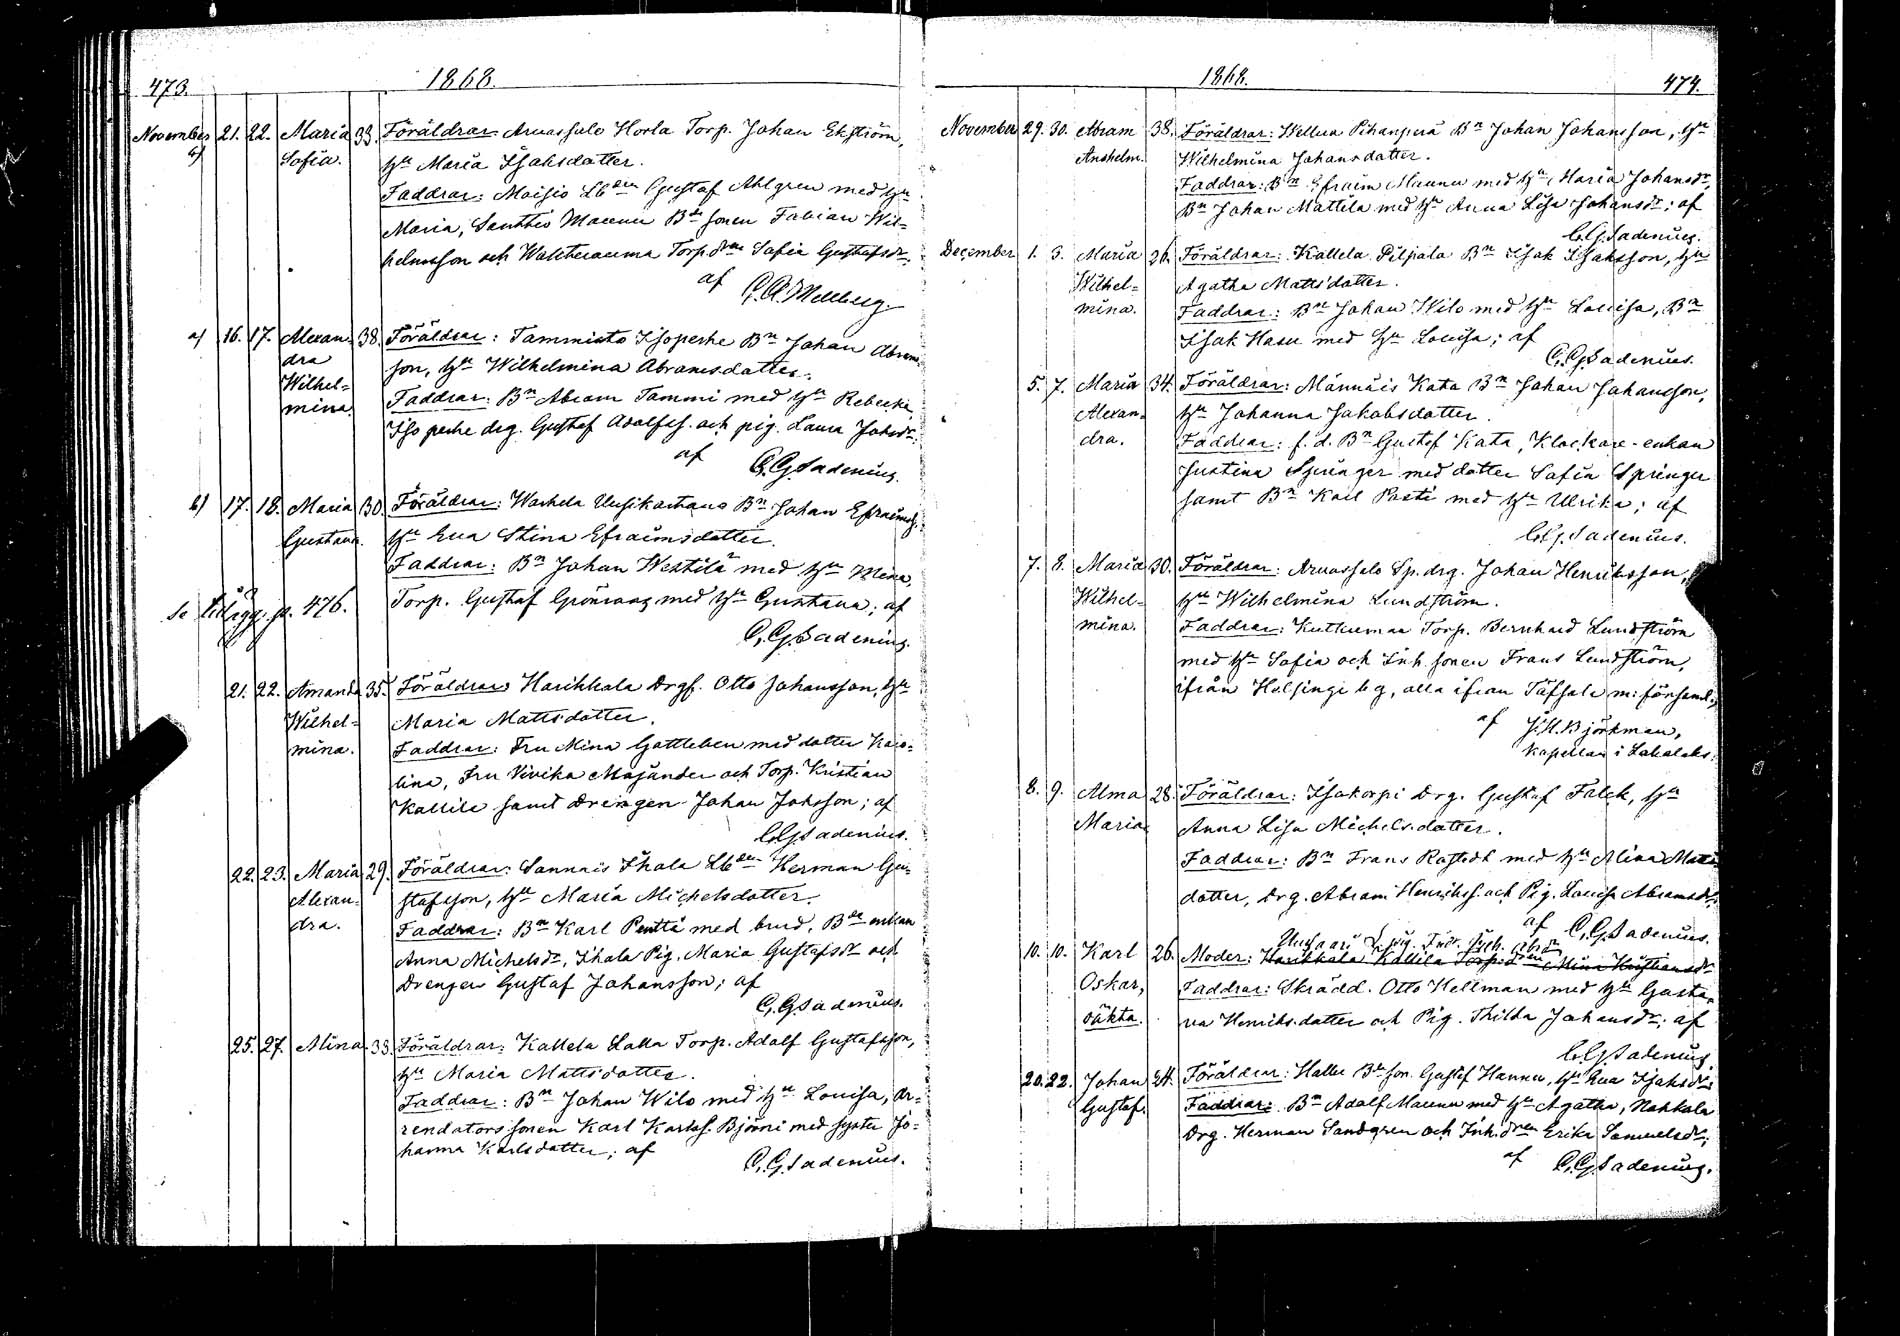 473.
1868.
November
c)
21. 22. Maria 33. Föräldrar: Arvassalo Horla Torp. Johan Ekström,
Sofia. Hu Maria Isaksdotter.
Faddrar: Moisio Lbden Gustaf Ahlgren med Hu
Maria, Santtio Maunu Bdesonen Fabian Wil=
helmsson och Torp.drn Sofia Gustafsdr;
af
a) 16. 17. Alexan= 38. Föräldrar: Tammisto Isoperhe Bn Johan Abrams=
dra son, Hu Wilhelmina Abramsdotter.
Wilhel= Faddrar: Bn Abram Tammi med Hu Rebecka,
mina. Isoperhe drg. Gustaf Adolfss. och pig. Laura Johsdr;
af
C.G. Sadenius.
b) 17. 18. Maria 30. Föräldrar: Warhela Uusikartano Bn Johan Efraimss.
Gustava. Hu Eva Stina Efraimsdotter.
Faddrar: Bn Johan Westilä med Hu Mina,
Torp. Gustaf Grönroos med Hu Gustava; af
Se tilägg. p. 476.
C.G. Sadenius.
21. 22. Amanda 35. Föräldrar: Harikkala Drgf. Otto Johansson, Hu
Wilhel= Maria Mattsdotter.
mina. Faddrar: Fru Mina Gottleben med dotter Karo=
lina, Fru Vivika Majander och Torp. Kristian
Kallila samt Drängen Johan Johsson; af
C.G. Sadenius.
22. 23. Maria 29. Föräldrar: Sannais Ihala Lbden Herman Gu=
Alexan= stafsson, Hu Maria Michelsdotter.
dra. Faddrar: Bn Karl Penttä med brud, Bde enkan
Anna Michelsdr, Ihala Pig. Maria Gustafsdr och
Drengen Gustaf Johansson; af
C.G. Sadenius.
25. 27. Alina. 33. Föräldrar: Kallela Lalla Torp. Adolf Gustafsson,
Hu Maria Mattsdotter.
Faddrar: Bn Johan Wilo med Hu Lovisa, Ar=
rendators sonen Karl Karlss. Björni med syster Jo=
hanna Karlsdotter; af
C.G. Sadenius.
1868.
474.
November 29. 30. Abram 38. Föräldrar: Wellua Pihanperä Bn Johan Johansson, Hu
Anshelm. Wilhelmina Johansdotter.
Faddrar: Bn Efraim Maunu med Hu Maria Johansdr,
Bn Johan Mattila med Hu Anna Lisa Johansdr; af
C.G. Sadenius.
December 1. 3. Maria 26. Föräldrar: Kallela Pilpala Bn Isak Isaksson, Hu
Wilhel= Agatha Mattsdotter.
mina. Faddrar: Bn Johan Wilo med Hu Lovisa, Bn
Isak Hasu med Hu Lovisa; af
C.G. Sadenius.
5. 7. Maria 34. Föräldrar: Männäis Kata Bn Johan Johansson,
Alexan= Hu Johanna Jakobsdotter.
dra. Faddrar: f.d. Bn Gustaf Kata, Klockare-enkan
Justina Springer med dotter Sofia Springer
samt Bn Karl Pasti med Hu Ulrika; af
C.G. Sadenius.
7. 8. Maria 30. Föräldrar: Arvassalo Sp.drg. Johan Henriksson,
Wilhel= Hu Wilhelmina Lundström.
mina. Faddrar: Kutkuman Torp. Bernhard Lundström
med Hu Sofia och Inh. sonen Frans Lundström,
ifrån Helsinge by, alla ifrån Töfsala m: församl.,
af J.H. Björkman,
Kapellan i Lokalaks.
8. 9. Alma 28. Föräldrar: Isokorpi Drg. Gustaf Falck, Hu
Maria. Anna Lisa Michelsdotter.
Faddrar: Bn Frans Rostedt med Hu Alina Matts
dotter, Drg. Abram Henrikss. och Pig. Lovisa Abramsdr;
af C.G. Sadenius.
10. 10. Karl 26. Moder: Harikkala Kallila Torp. drn Mina Kristiansdr
Oskar, Faddrar: Skrädd. Otto Hellman med Hu Gusta=
oäkta. va Henriksdotter och Pig. Thilda Johansdr; af
C.G. Sadenius.
20. 22. Johan 24. Föräldrar: Hallu Bdeson. Gustaf Hannu, Hu Eva Isaksdr;
Gustaf. Faddrar: Bn Adolf Maunu med Hu Agatha, Nahkala
Drg. Herman Sandgren och Inh. dren Erika Samuelsdr;
af C.G. Sadenius.